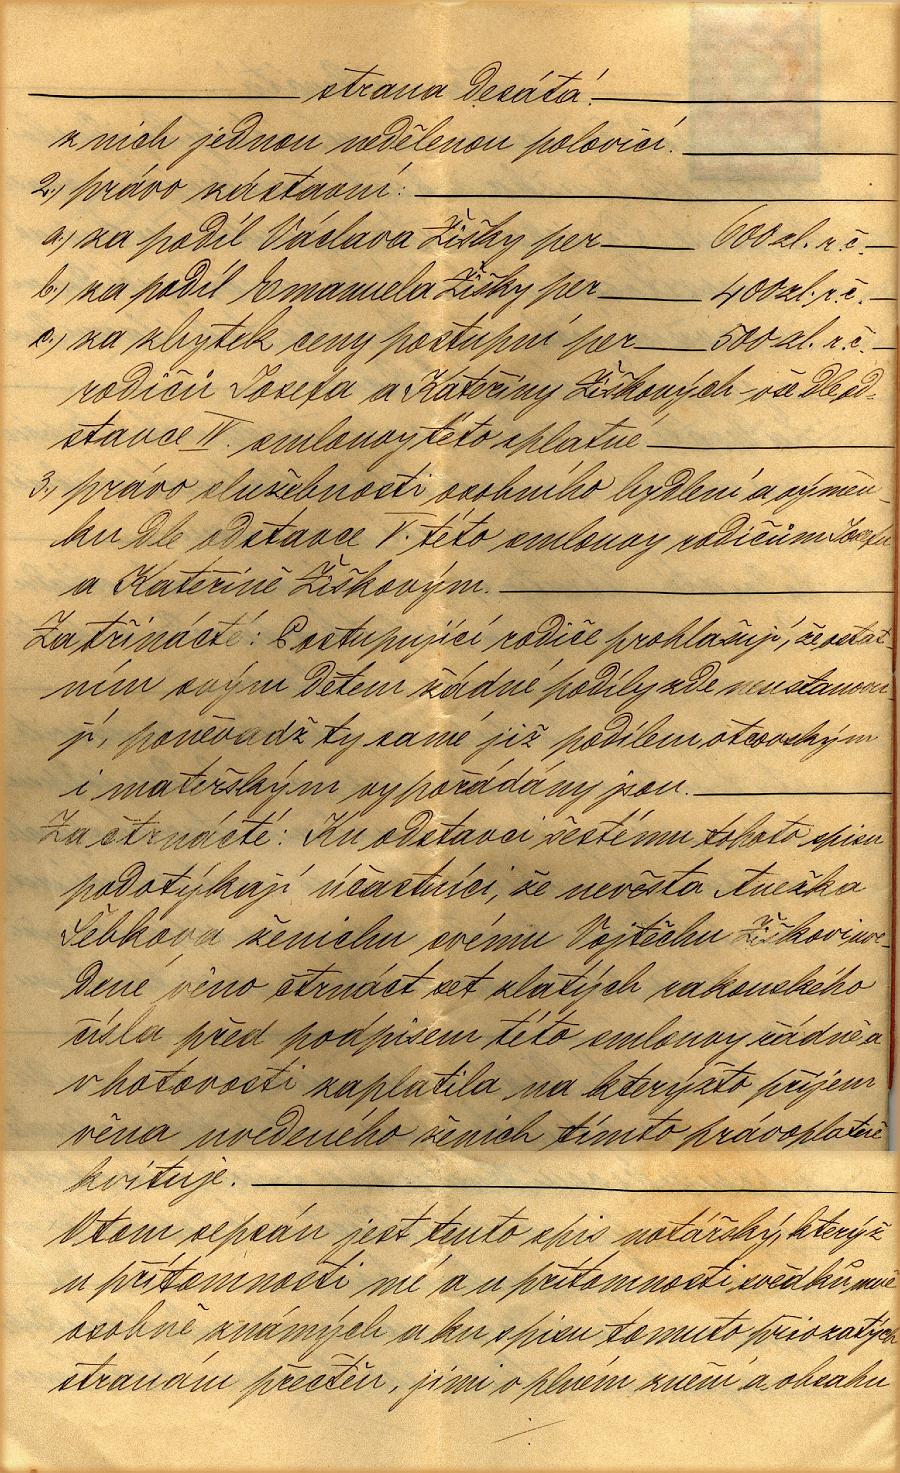 strana desátá.
z nich jednou nedělenou polovicí.
2.) právo zástavní:
a.) za podíl Václava Žišky per 600 zl. r. č.
b.) za podíl Emanuela Žišky per 400 zl. r. č.
c.) za zbytek ceny postupní per 500 zl. r. č.
rodičů Josefa a Kateřiny Žiškových vše dle od-
stavce IV. smlouvy této splatné
3.) právo služebnosti osobního bydlení a výměn-
ku dle odstavce V. této smlouvy rodičům Josefu
a Kateřině Žiškovým.
Za třinácté: Postupující rodiče prohlašují, že ostat-
ním svým dětem žádné podíly zde neustanovu-
jí, poněvadž ty samé již podílem otcovským
i mateřským vypořádány jsou.
Za čtrnácté: Ku odstavci šestému tohoto spisu
podotýkají účastníci, že nevěsta Anežka
Šebkova ženichu svému Vojtěchu Žiškovi uve-
dené věno čtrnáct set zlatých rakouského
čísla před podpisem této smlouvy řádně a
v hotovosti zaplatila na kterýžto příjem
věna uvedeného ženich tímto právoplatně
kvituje.
O tom sepsán jest tento spis notářský, kterýž
u přítomnosti mé a u přítomnosti svědků mně
osobně známých a ku spisu tomuto přivzatých
stranám přečten, jimi v plném znění a obsahu